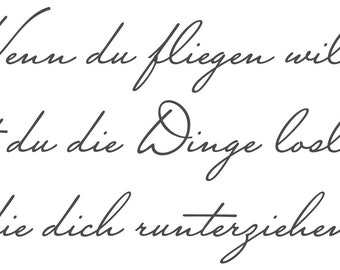 Wenn du fliegen wil
t du die Dinge losl
die dich runterziehen